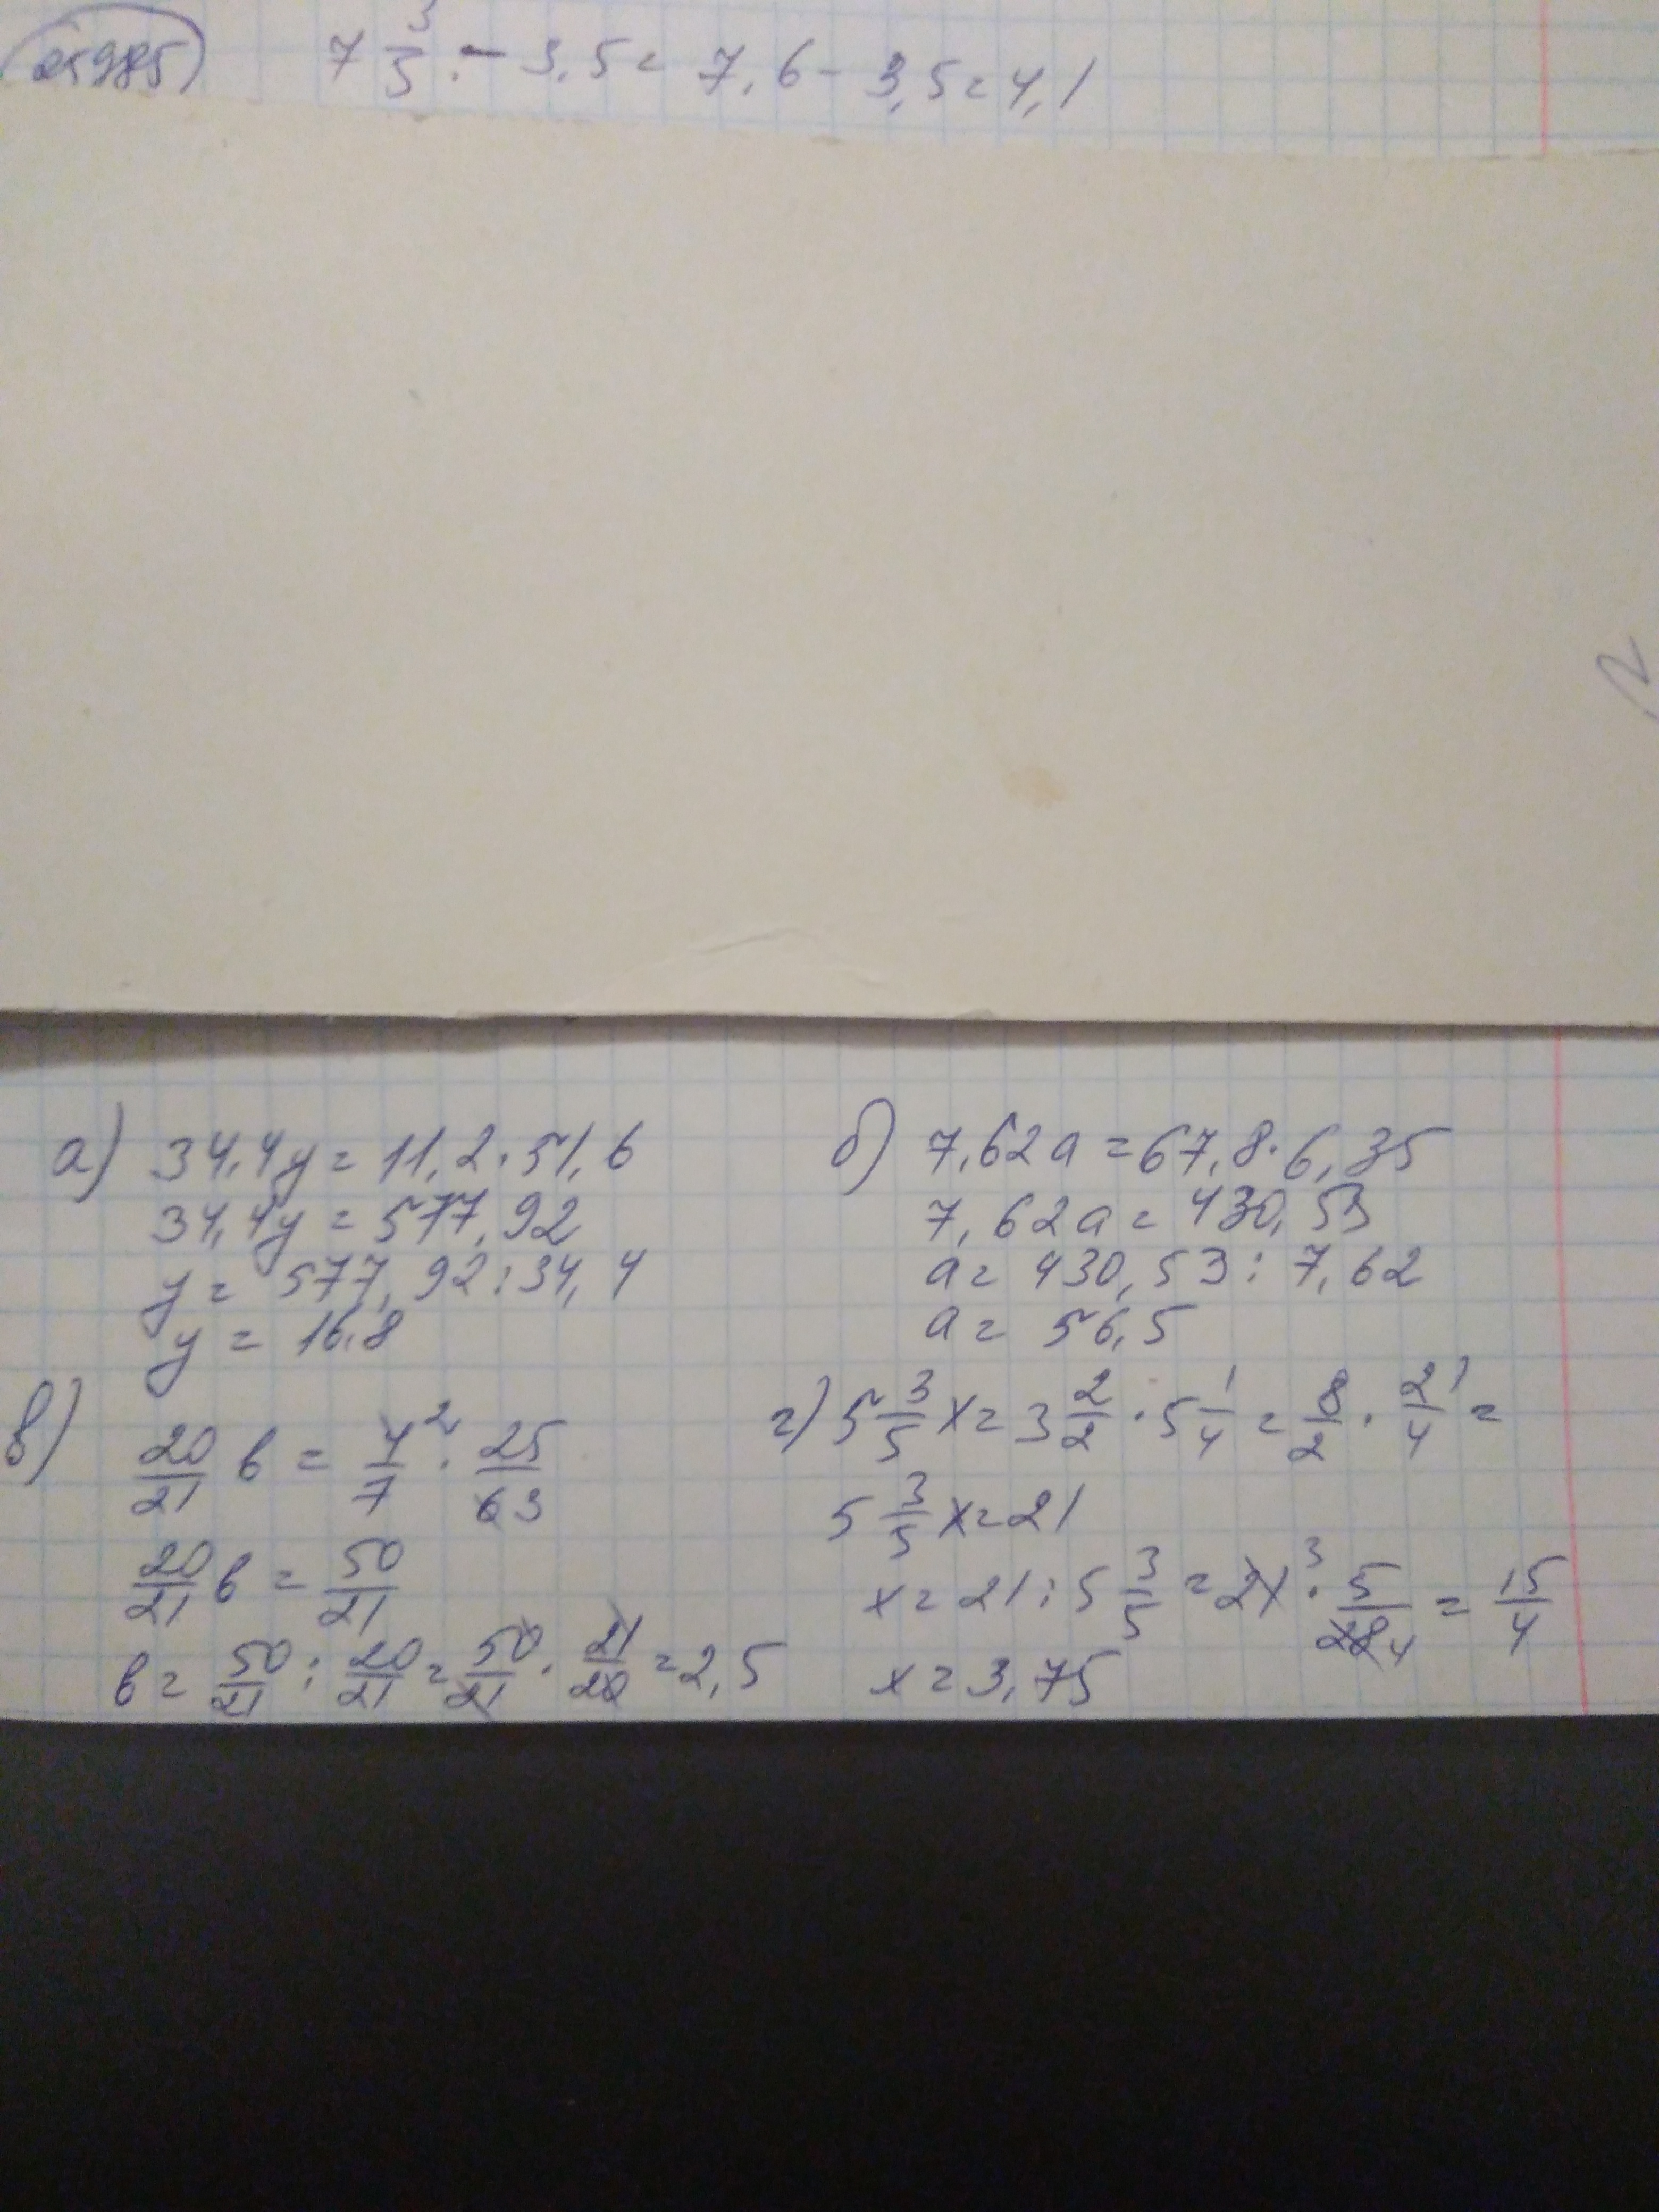 7 3/5 - 3,5 = 7,6 - 3,5 = 4,1
а) 34,4y = 11,2 · 51,6
34,4y = 577,92
y = 577,92 : 34,4
y = 16,8
б) 7,62a = 67,8 · 6,35
7,62a = 430,53
a = 430,53 : 7,62
a = 56,5
в) 20/21 в = 4/7 2 · 25/63
20/21 в = 50/21
в = 50/21 : 20/21 = 50/21 · 21/20 = 2,5
г) 5 3/5 x = 3 2/2 · 5 1/4 = 8/2 · 21/4 =
5 3/5 x = 21
x = 21 : 5 3/5 = 21 3 · 5/28 4 = 15/4
x = 3,75